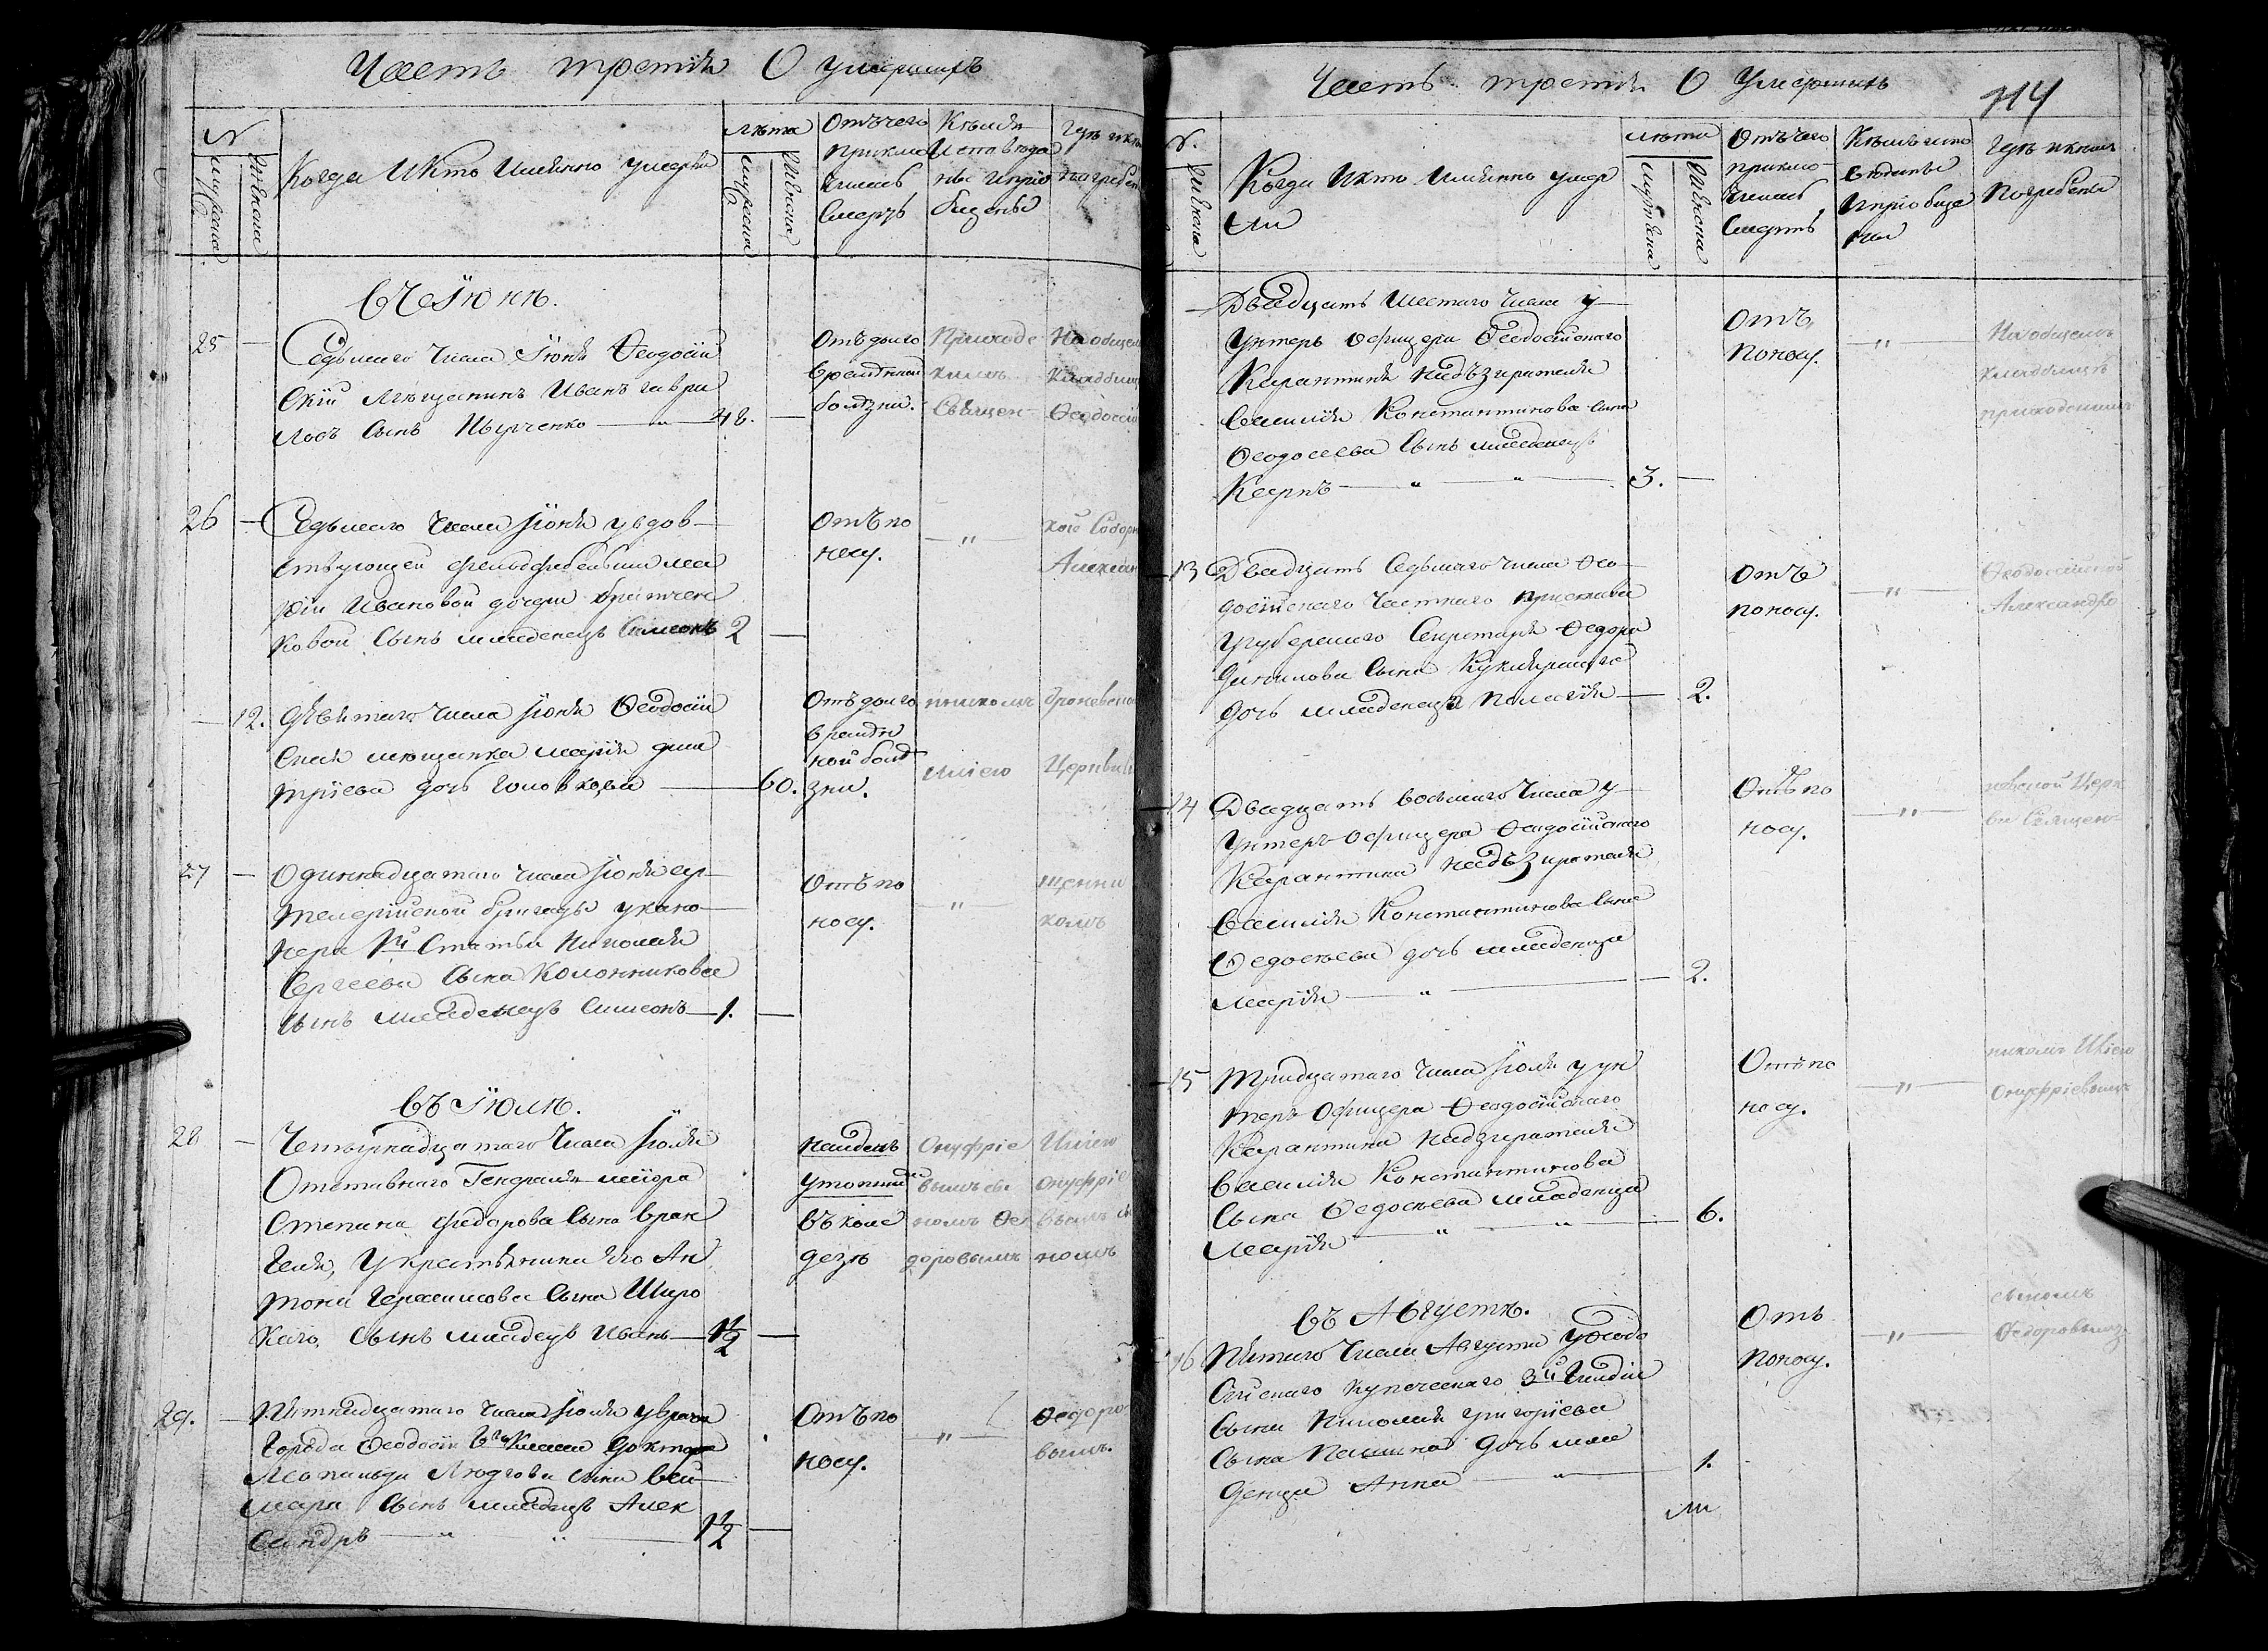 Часть третія О умершихъ
N
мужеска
женска
Когда и кто именно умерли
лѣта
мужеска
женска
Отъ чего
приклю
чилась
смерть
Кѣмъ
исповѣда
ны и пріо
бщены
Гдѣ и кѣмъ
погребены
въ Іюнѣ.
25
Седьмаго числа Іюня Ѳеодосій
скій мѣщанинъ Иванъ Гаври
ловъ сынъ
48.
Отъ долго
временной
болѣзни.
Приходс
кимъ
Священ
На общем
кладбищ
Ѳеодосій
26
Седьмаго числа Іюня у вдов
ствующей фельдфебельши Ма
ріи Ивановой дочери
ковой сынъ младенецъ Симеонъ
2
Отъ по
носу.
кого Собор
Алексан
12.
Девятаго числа Іюня Ѳеодосій
ская мѣщанка Марія Дми
тріева дочь Головкова
60.
Отъ долго
времен
ной болѣ
зни.
никомъ
Иліею
Церкви
27
Одиннадцатаго числа Іюня ар
тилерійской бригады у кано
нера 1й статьи Николая
Сергеева сына Колонникова
сынъ младенецъ Симеонъ
1.
Отъ по
носу.
щенни
комъ
въ Іюлѣ.
28
Четырнадцатаго числа Іюля
Отставнаго Генералъ маіора
Степана Федорова сына Вран
геля, у крестьянина его Ан
тона Герасимова сына Широ
каго, сынъ младецъ Иванъ
1½
найденъ
утопшимъ
въ коло
дезѣ
Онуфріе
вымъ
номъ Ѳео
доровымъ
Иліею
Онуфріе
вымъ
номъ
29.
Пятнадцатаго числа Іюля у врача
города Ѳеодосіи 6го класса доктора
Леопольда сына Вей
мара сынъ младецъ Алек
сандръ
1½
Отъ по
носу.
Ѳедоро
вымъ.
Часть третія О умершихъ
114
N.
женска
Когда и кто именно умер
ли
лѣта
мужеска
женска
Отъ чего
приклю
чилась
смерть
Кѣмъ испо
вѣданы
и пріобще
ны
Гдѣ и кѣмъ
погребены
Двадцать шестаго числа у
унтеръ офицера Ѳеодосійскаго
Карантина надъзирателя
Василія Константинова сына
Ѳеодосеева сынъ младенецъ
Карпъ
3.
Отъ
поносу.
На общемъ
кладбищѣ
приходскимъ
13
Двадцать седьмаго числа Ѳео
досійскаго частнаго пристава
губернскаго секретаря Ѳедора
Данилова сына
дочь младенца Пелагія
2.
Отъ
поносу.
Ѳеодосійской
Александро
14
Двадцать восьмаго числа у
унтеръ-офицера Ѳеодосійскаго
Карантина надъзирателя
Василія Константинова сына
Ѳедосѣева дочь младенца
Марія
2.
Отъ по
носу.
невской Церк
ви Священ
15
Тридцатаго числа Іюля у ун
теръ-Офицера Ѳеодосійскаго
Карантина надзирателя
Василія Константинова
сына Ѳедосѣева младенца
Марія
6.
Отъ по
носу.
никомъ Иліею
Онуфріевымъ
въ Августѣ.
16
Пятаго числа Августа у Ѳеодо
сійскаго купеческаго 3й Гилдіи
сына Николая Григоріева
сына дочь мла
денца Анна
1.
Отъ
поносу.
сыномъ
Ѳедоровымъ.